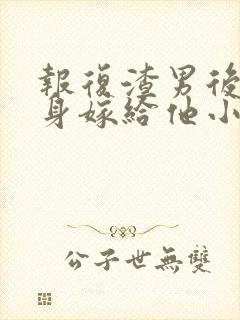 報復渣男後
身嫁給他小
公子世無雙